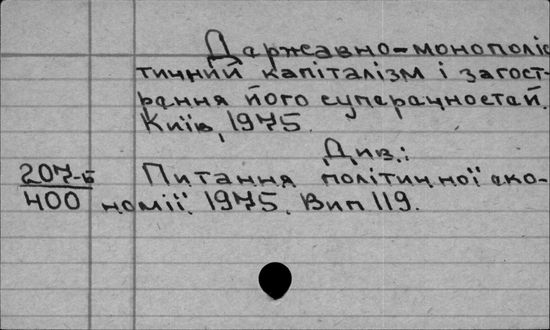 Державно-монополіс
тичний капіталізм і загост-
рення його суперечностей.
Київ, 1975.
Див.:
207-Б Питання політичної еко-
400 номії. 1975. Вип 119.